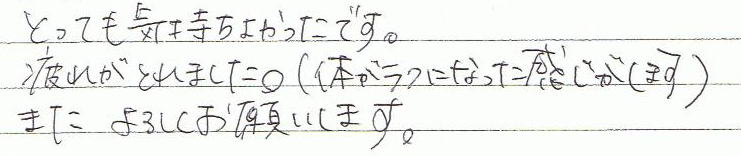 とっても気持ちよかったです。
疲れがとれました。(体がラクになった感じがします)
また よろしくお願いします。